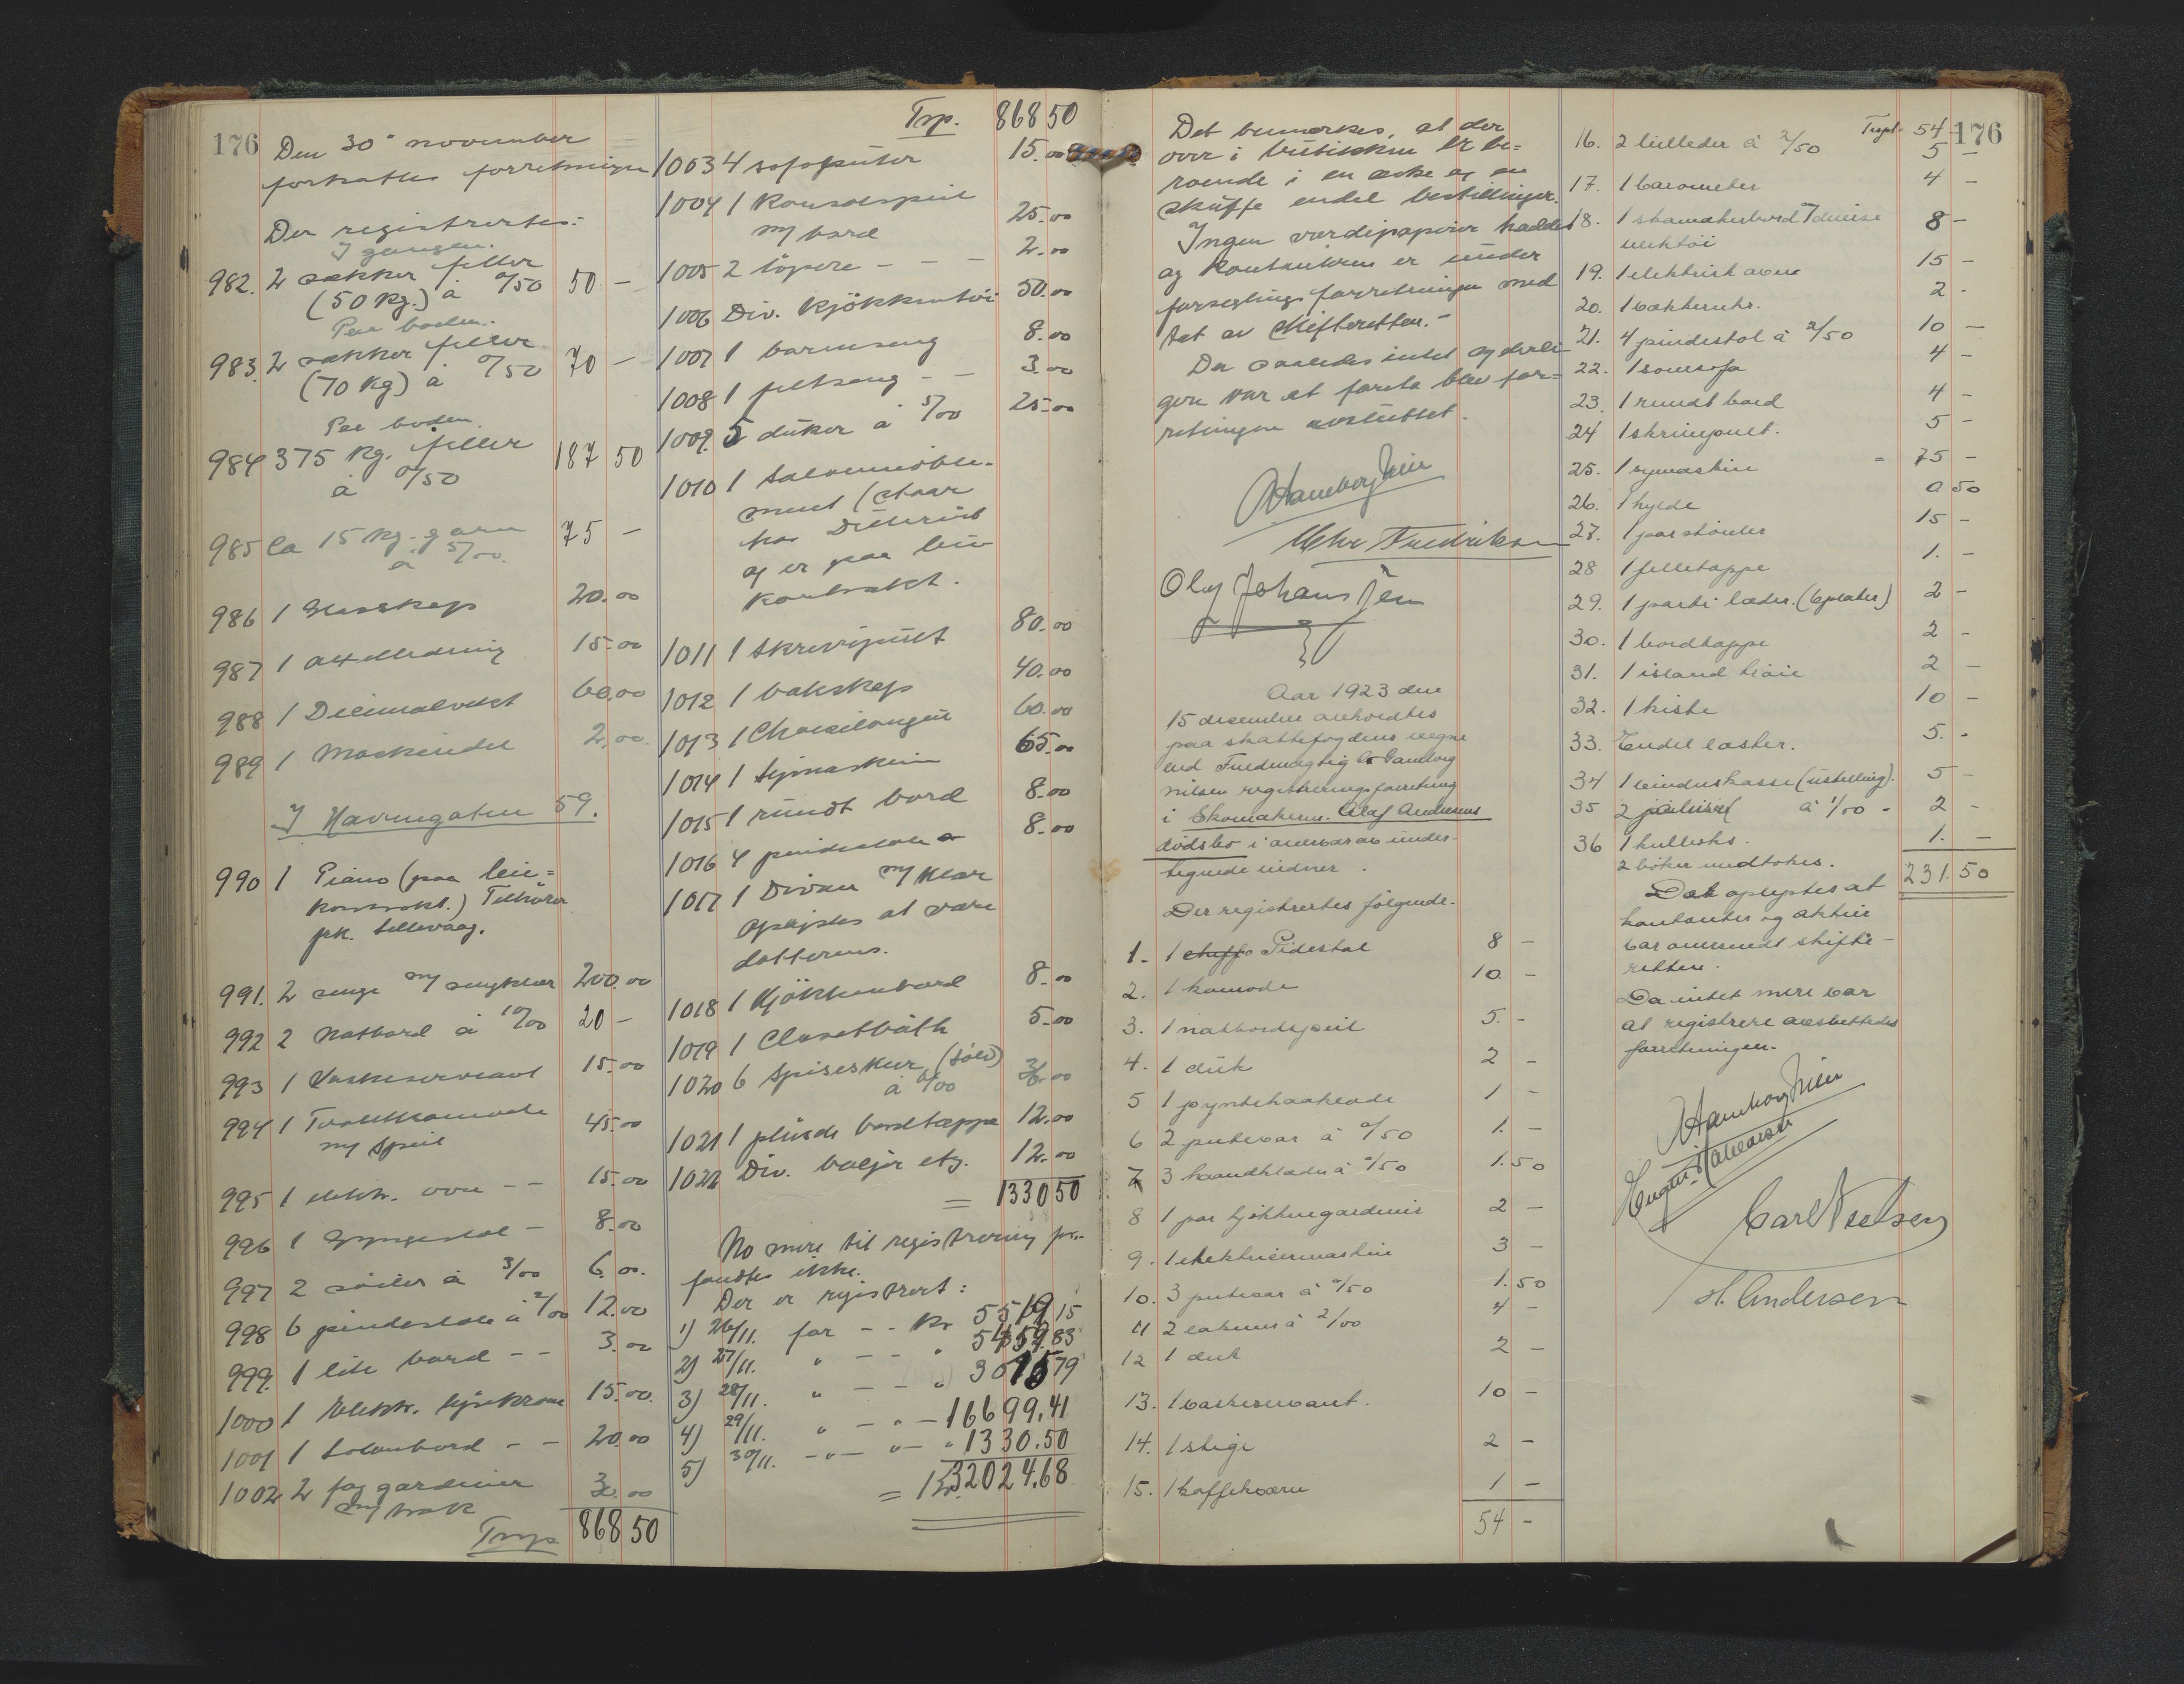 176
Den 30' november
fortsattes forretningen
Der registrertes:
I gangen.
982. 2 sækker filler
(50 kg.) à 0/50 50 -
Paa boden.
983. 2 sækker filler
(70 kg) à 0/50 70 -
Paa boden
984 375 kg. filler
à 0/50 187 50
985 Ca 15 kg. garn
à 5/00. 75 -
986 1 Glasskap 20.00
987 1 20 15.00
988 1 Decimalvekt 60.00
989 1 2.00.
I Havnegaten 59.
990 1 Piano (paa leie=
kontrakt.) Tilhører
frk. Lillevaag.
991. 2 senge m/ sengklær 200.00
992 2 Natbord à 10/00 20 -
993 1 Vaskeservant 15.00
994 1 Toalettkomode
m/ speil 45.00
995 1 elektr. ovn - - 15.00
996 1 Gyngestol - 8.00
997 2 søiler à 3/00 6.00.
998 6 pindestole à 2/00 12.00
999. 1 lite bord - - 3.00
1000 1 Elektr. lysekrone 15.00.
1001 1 Salonbord - - 20.00
1002 2 fag gardiner
m/ 3.00
Trsp 868 50
Trsp. 868 50
1003 4 sofaputer 15.00
1004 1 Konsolspeil
m/ bord 25.00
1005 2 löpere - - - 2.00
1006 Div. Kjökkentöi 50.00
1007 1 barneseng 8.00
1008 1 feltseng - - 3.00
1009. 5 duker à 5/00 25.00
1010 1 Salonmöble-
ment (staar
hos
og er paa leie
kontrakt.
1011 1 Skrivepult 80.00
1012 1 bokskap 40.00
1013 1 Chaiselongue 60.00
1014 1 Symaskin 65.00
1015 1 rundt bord 8.00
1016 4 pindestole 8.00
1017 1 Divan m/ klær
opgives at være
datterens.
1018 1 Kjökkenbord 8.00
1019 1 Closetbötte 5.00
1020 6 Spiseskeer (sölv)
à 6/00 36.00
1021 1 plüsch bordtæppe 12.00
1022 Div. baljer etz. 12.00
= 1330 50
No mere til registrering for-
fandtes ikke.
Der er registrert:
1) 26/11. for - - Kr 5519 15
2) 27/11. " - - " 5459.83
3) 28/11. " - - " 3015 79
4) 29/11. " - " - 16699.41
5) 30/11. - " - " - " 1330.50
= Kr. 32024.68
Det bemerkes, at der
over i butikken er be=
roende i en æske og en
skuffe endel bestillinger.
Ingen værdipapirer haddes
og Kontanterne er under
forseglingsforretningen med
tat av Skifteretten.-
Da saaledes intet yderli-
gere var at foreta blev for=
retningen avsluttet.
Chr Fredriksen
Olaf Johansen
Aar 1923 den
15 desember avholdtes
paa skattefogdens vegne
ved Fuldmægtig A Hamborg
Nilsen registreringsforretning
i Skomakerm. Olaf Andersens
dödsbo i overvær av under-
tegnede vidner.
Der registrertes følgende.
1. 1 Pidestal 8 -
2. 1 komode 10 -
3. 1 natbordspeil 5. -
4. 1 duk 2 -
5 1 pyntehaandklæde 1 -
6 2 putevar à 0/50 1. -
7 3 haandklæder à 0/50 1.50
8 1 par kjökkengardiner 2 -
9. 1 elektrisermaskin 3 -
10. 3 putevar à 0/50 1.50
11 2 lakener à 2/00 4 -
12 1 duk 2 -
13. 1 vaskeservant. 10 -
14. 1 stige 2 -
15. 1 kaffekværn 1 -
54 -
Trspt. 54 -
176
16. 2 billeder à 2/50 5 -
17. 1 barometer 4 -
18. 1 skomakerbord m/ diverse
verktöi 8 -
19. 1 elektrisk ovn 15 -
20. 1 vækkeruhr. 2 -
21. 4 pindestol à 2/50 10 -
22. 1 sovesofa 4 -
23. 1 rundt bord 4 -
24 1 skrivepult. 5 -
25. 1 symaskin " 75 -
26. 1 hylde 0 50
27. 1 par støvler 15 -
28 1 filletæppe 1. -
29. 1 parti læder. (6 plater) 2 -
30. 1 bordtæppe 2 -
31. 1 island tröie 2 -
32. 1 kiste 10 -
33. Endel læster. 5. -
34 1 vinduskasse (utstilling). 5 -
35 2 à 1/00 - 2 -
36 1 kulboks. 1. -
2 böker medtokes.
231.50
Det oplystes at
kontanter og aktier
var anvendt skifte-
retten.
Da intet mere var
at registrere avsluttedes
forretningen.
Carl Nielsen
A. Andersen